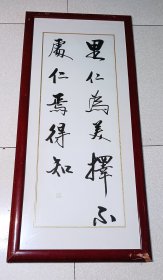 里仁為美擇不
處仁焉得知